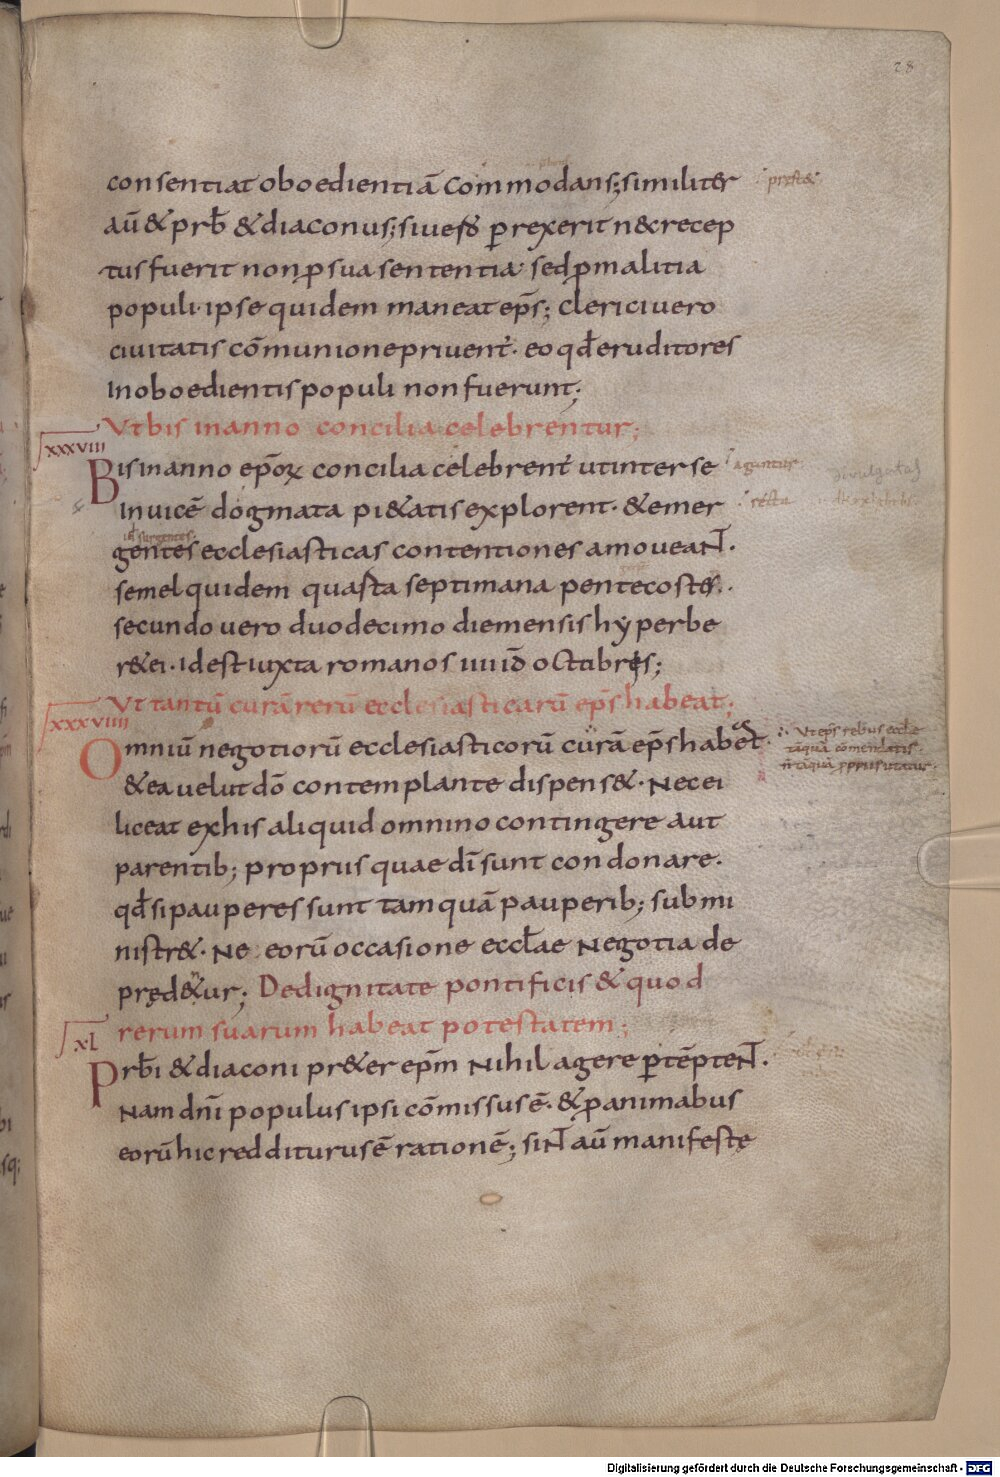 28
consentiat oboedientiā commodans; similiter
aū & prb̄ & diaconus; siue ſð p̱rexerit n&recep
tus fuerit non ꝓ sua sententia· sed ꝓ malitia
populi· ipse quidem maneat ep̄s; clerici uero
ciuitatis cōmunione priuent᷑· eo qđ eruditores
Inoboedientis populi non fuerunt;
Vt bis in anno concilia celebrentur;
xxxviii
Bis in anno ep̄oꝝ concilia celebrent᷑ ut inter se
Inuicē dogmata pi&atis explorent· & emer
gentes ecclesiasticas contentiones amoueant·
semel quidem quarta septimana pentecostes·
secundo uero duodecimo die mensis hẏperbe
r&ei· Idest iuxta romanos iiii id̄ octibres;
Vt tantū curā rerū ecclesiasticarū ep̄s habeat;
xxxviiii
Omniū negotiorū ecclesiasticorū curā ep̄s habeat·
& ea uelut dō contemplante dispens&· Nec ei
liceat ex his aliquid omnino contingere aut
parentib; propriis quae dī sunt condonare·
qđ si pauperes sunt tamquā pauperib; submi
nistr&· Ne eorū occasione eccl̄ae Negotia de
pręd&ur; De dignitate pontificis & quod
rerum suarum habeat potestatem;
xl
Prb̄i & diaconi pr&er ep̄m Nihil agere p̱temptent·
Nam dn̄i populus ipsi cōmissus ē· & ꝓ animabus
eorū hic redditurus ē rationē; sint aū manifestę
prest&
aguntur
secta
Vt ep̄s rebus eccle
tāquā cōmendatis·
n̄ tāquā ꝓpriis utatur·
Digitalisierung gefördert durch die Deutsche Forschungsgemeinschaft - DFG